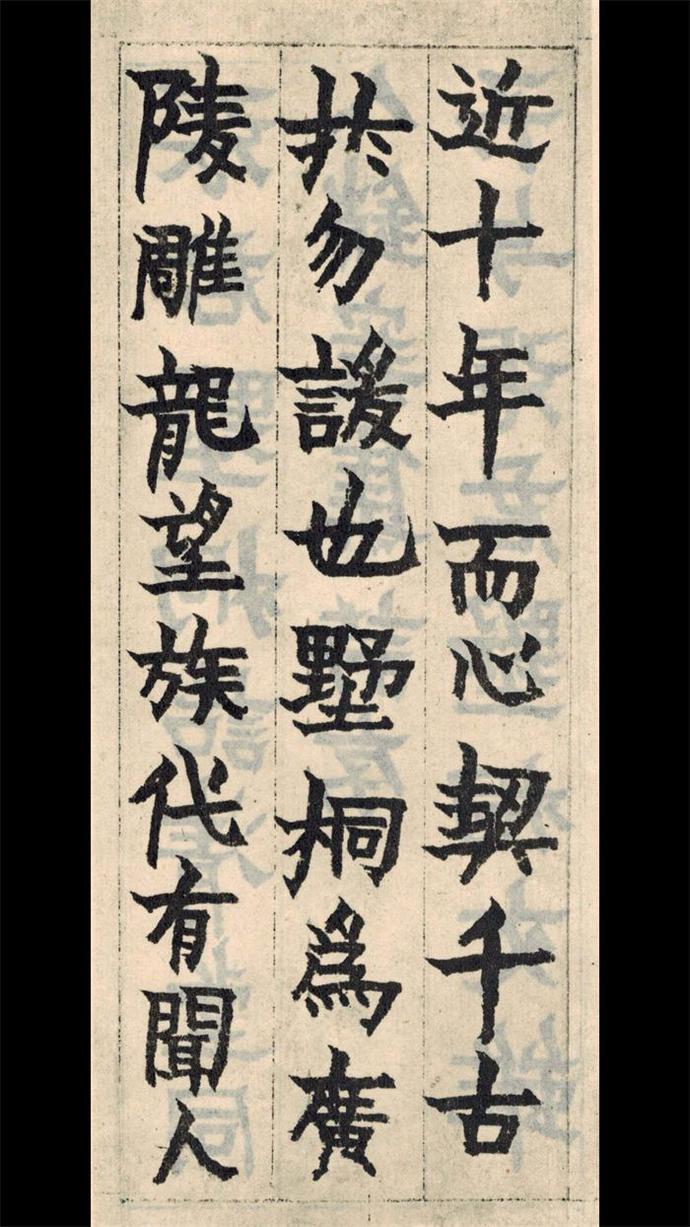 近十年而心契千古
共勿諼也墅桐爲廣
陵雕龍望族代有聞人